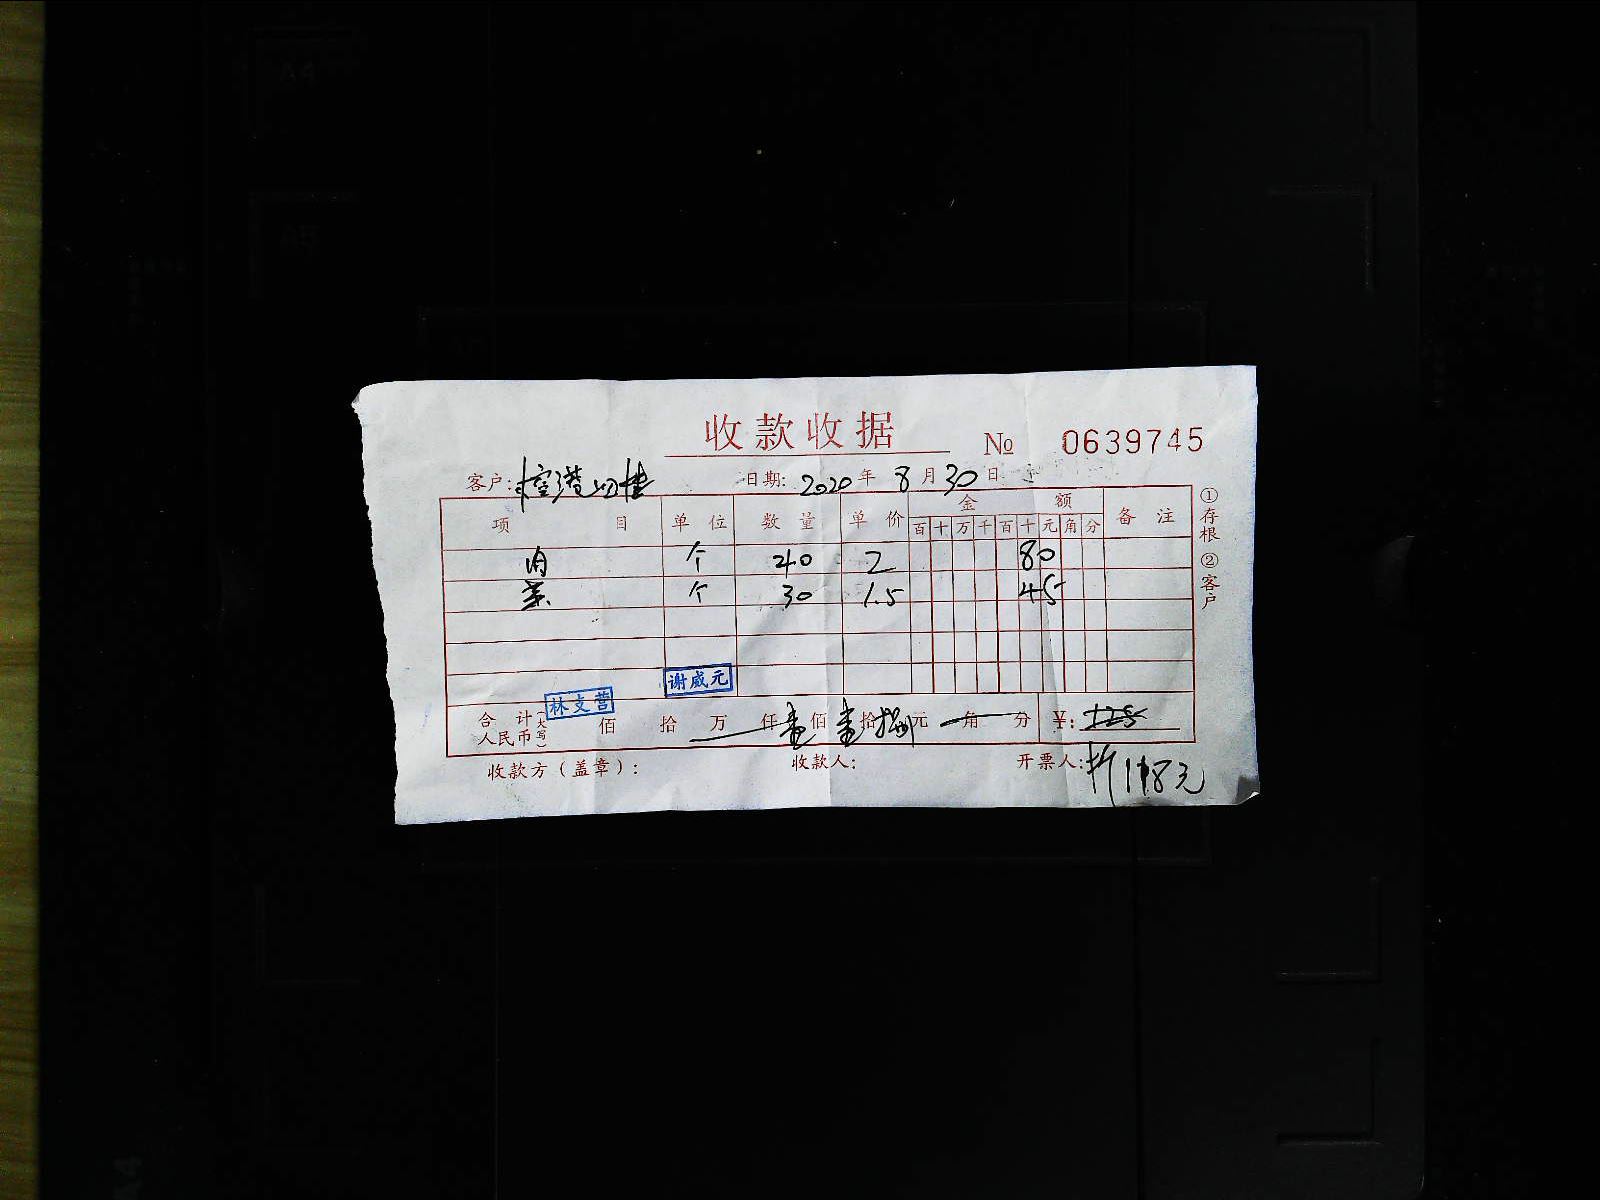 收款收据 № 0639745
客户: 日期: 2020年8月30日
项目 单位 数量 单价 金额 备注
百 十 万 千 百 十 元 角 分
肉 个 40 2 80
菜 个 30 1.5 45
谢威元
林支营
合计人民币(大写) 佰 拾 万 仟 壹佰 壹拾捌元 角 分 ¥: 125
收款方(盖章): 收款人: 开票人:
折118元
①存根 ②客户
A4
A5